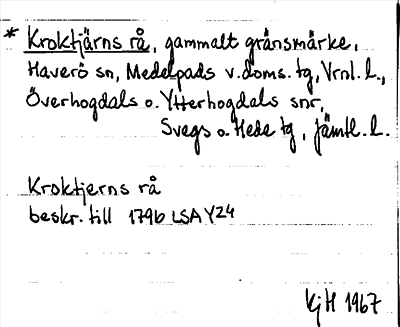 * Kroktjärns rå, gammalt gränsmärke,
Haverö sn, Medelpads v. doms. tg, Vrnl. l.,
Överhogdals o. Ytterhogdals snr,
Svegs o. Hede tg, Jämtl. l.
Kroktjerns rå
beskr. till 1796 LSA Y24
KjH 1967